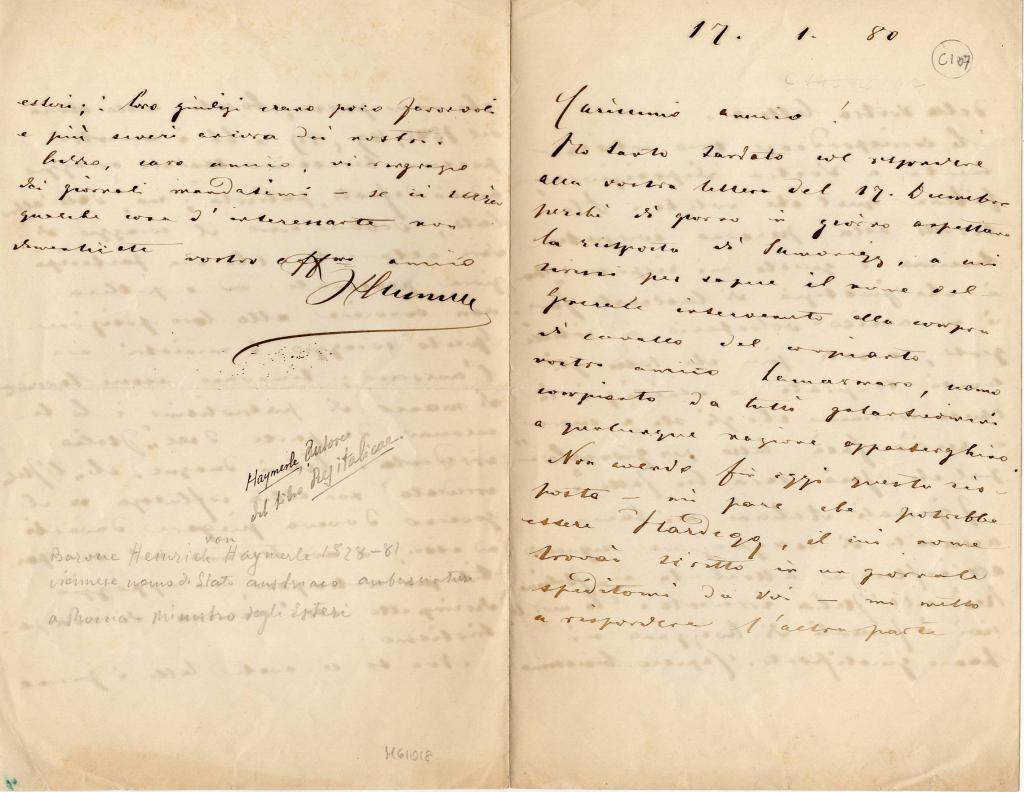 17. 1. 80
C107
Carissimo amico!
Ho tanto tardato col rispondere
alla vostra lettera del 17. Dicembre
perchè di giorno in giorno aspettavo
la risposta di, a cui
scrissi per sapere il nome del
Generale intervenuto alla compra
di cavallo del compianto
vostro amico Lamarmora, uomo
compianto da tutti galantuomini
a qualunque nazione appartenghino.
Non avendo fin oggi questa ris-
posta – mi pare che potrebbe
essere Hardegg, il cui nome
trovai scritto in un giornale
speditomi da voi – mi metto
a rispondere l'altra parte
esteri; i loro giudizi erano poco favorevoli
e più severi ancora dei nostri.
caro amico, vi ringrazio
dei giornali mandatimi – se ci sarà
qualche cosa d'interessante non
dimenticate
vostro affmo amico
Haymerle, autore
del libro Res italicae.
Barone Heinrich von Haymerle 1828-81
viennese uomo di Stato austriaco ambasciatore
a – Ministro degli Esteri
M61018